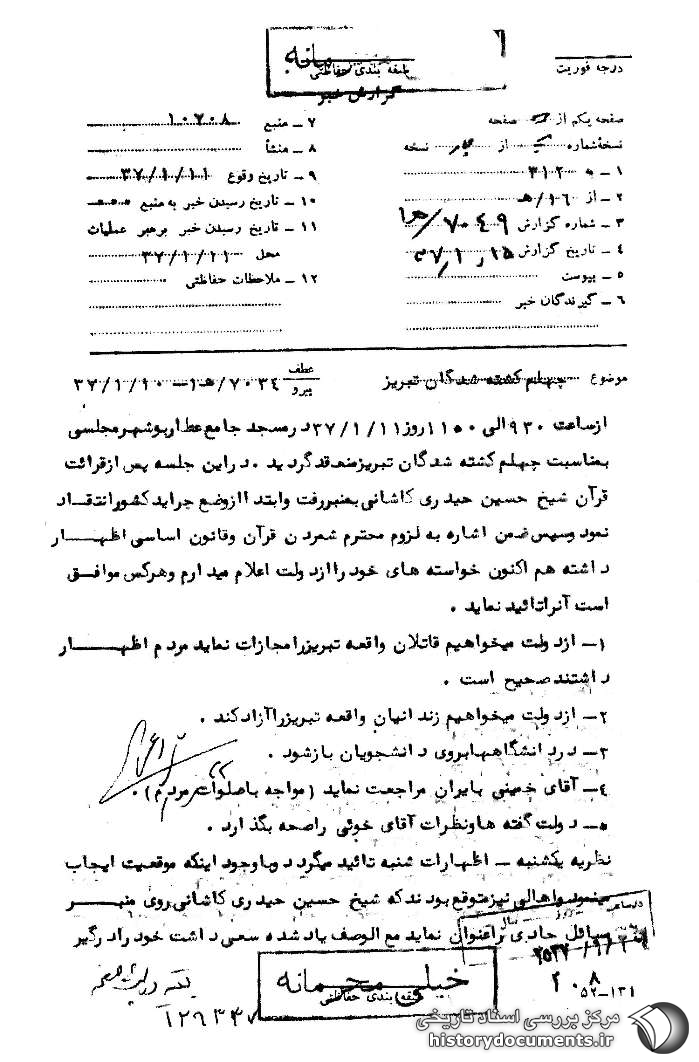 محرمانه
طبقه بندی حفاظتی
گزارش خبر
درجه فوریت
صفحه یکم از صفحه
نسخه شماره از نسخه
۱ – به ۳۱۲
۲ – از ۱۶/هـ
۳ – شماره گزارش ۷۰۴۹/هـ۱
۴ – تاریخ گزارش ۳۷/۱/۱۵
۵ – پیوست
۶ – گیرندگان خبر
۷ – منبع ۱۰۷۰۸
۸ – منشأ
۹ – تاریخ وقوع ۳۷/۱/۱۱
۱۰ – تاریخ رسیدن خبر به منبع
۱۱ – تاریخ رسیدن خبر برهبر عملیات
محل ۳۷/۱/۱۱
۱۲ – ملاحظات حفاظتی
موضوع چهلم کشته شدگان تبریز
عطف
پیرو
۷۰۳۴/هـ۱–۳۷/۱/۱۰
ازساعت ۹۳۰ الی ۱۱۵۰ روز ۳۷/۱/۱۱ درمسجد جامع عطار بوشهر مجلسی
بمناسبت چهلم کشته شدگان تبریز منعقد گردید . در این جلسه پس از قرائت
قرآن شیخ حسین حیدری کاشانی بمنبر رفت و ابتدا از وضع جراید کشور انتقاد
نمود وسپس ضمن اشاره به لزوم محترم شمردن قرآن وقانون اساسی اظهـــار
داشته هم اکنون خواسته های خود را از دولت اعلام میدارم وهرکس موافق
است آنرا تائید نماید .
۱– از دولت میخواهیم قاتلان واقعه تبریز را مجازات نماید مردم اظهـــار
داشتند صحیح است .
۲– از دولت میخواهیم زندانیان واقعه تبریز را آزاد کند .
۳– درد انشگاهها بروی دانشجویان باز شود .
۴– آقای خمینی بایران مراجعت نماید (مواجه با صلوات مردم) .
۵– دولت گفته ها و نظرات آقای خوئی را صحه بگذارد .
نظریه یکشنبه – اظهارات شنبه تائید میگردد وبا وجود اینکه موقعیت ایجاب
مینمود واهالی نیز متوقع بودند که شیخ حسین حیدری کاشانی روی منبـــر
مسائل حادی را عنوان نماید مع الوصف یاد شده سعی داشت خود را درگیر
خیلی محرمانه
طبقه بندی حفاظتی
۱۲۶۳۳۷
۵۲–۱۳۱
۲۰۸
مرکز بررسی اسناد تاریخی
historydocuments.ir